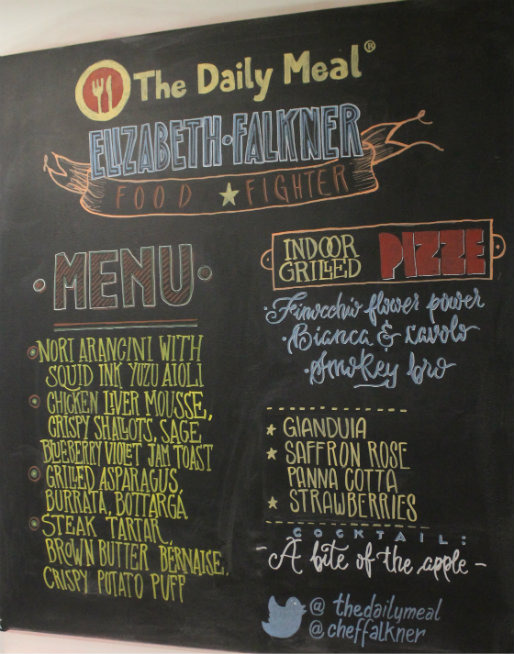 The Daily Meal®
ELIZABETH·FALKNER
FOOD ★ FIGHTER
·MENU·
NORI ARANCINI WITH
SQUID INK YUZU AIOLI
CHICKEN LIVER MOUSSE,
CRISPY SHALLOTS, SAGE
BLUEBERRY VIOLET JAM TOAST
GRILLED ASPARAGUS,
BURRATA, BOTTARGA
STEAK TARTAR,
BROWN BUTTER BÉRNAISE,
CRISPY POTATO PUFF
INDOOR
GRILLED PIZZE
·Finocchio flower power
·Bianca & cavolo
·Smokey bro
★ GIANDUIA
★ SAFFRON ROSE
PANNA COTTA
★ STRAWBERRIES
COCKTAIL:
- A bite of the apple -
@ thedailymeal
@cheffalkner